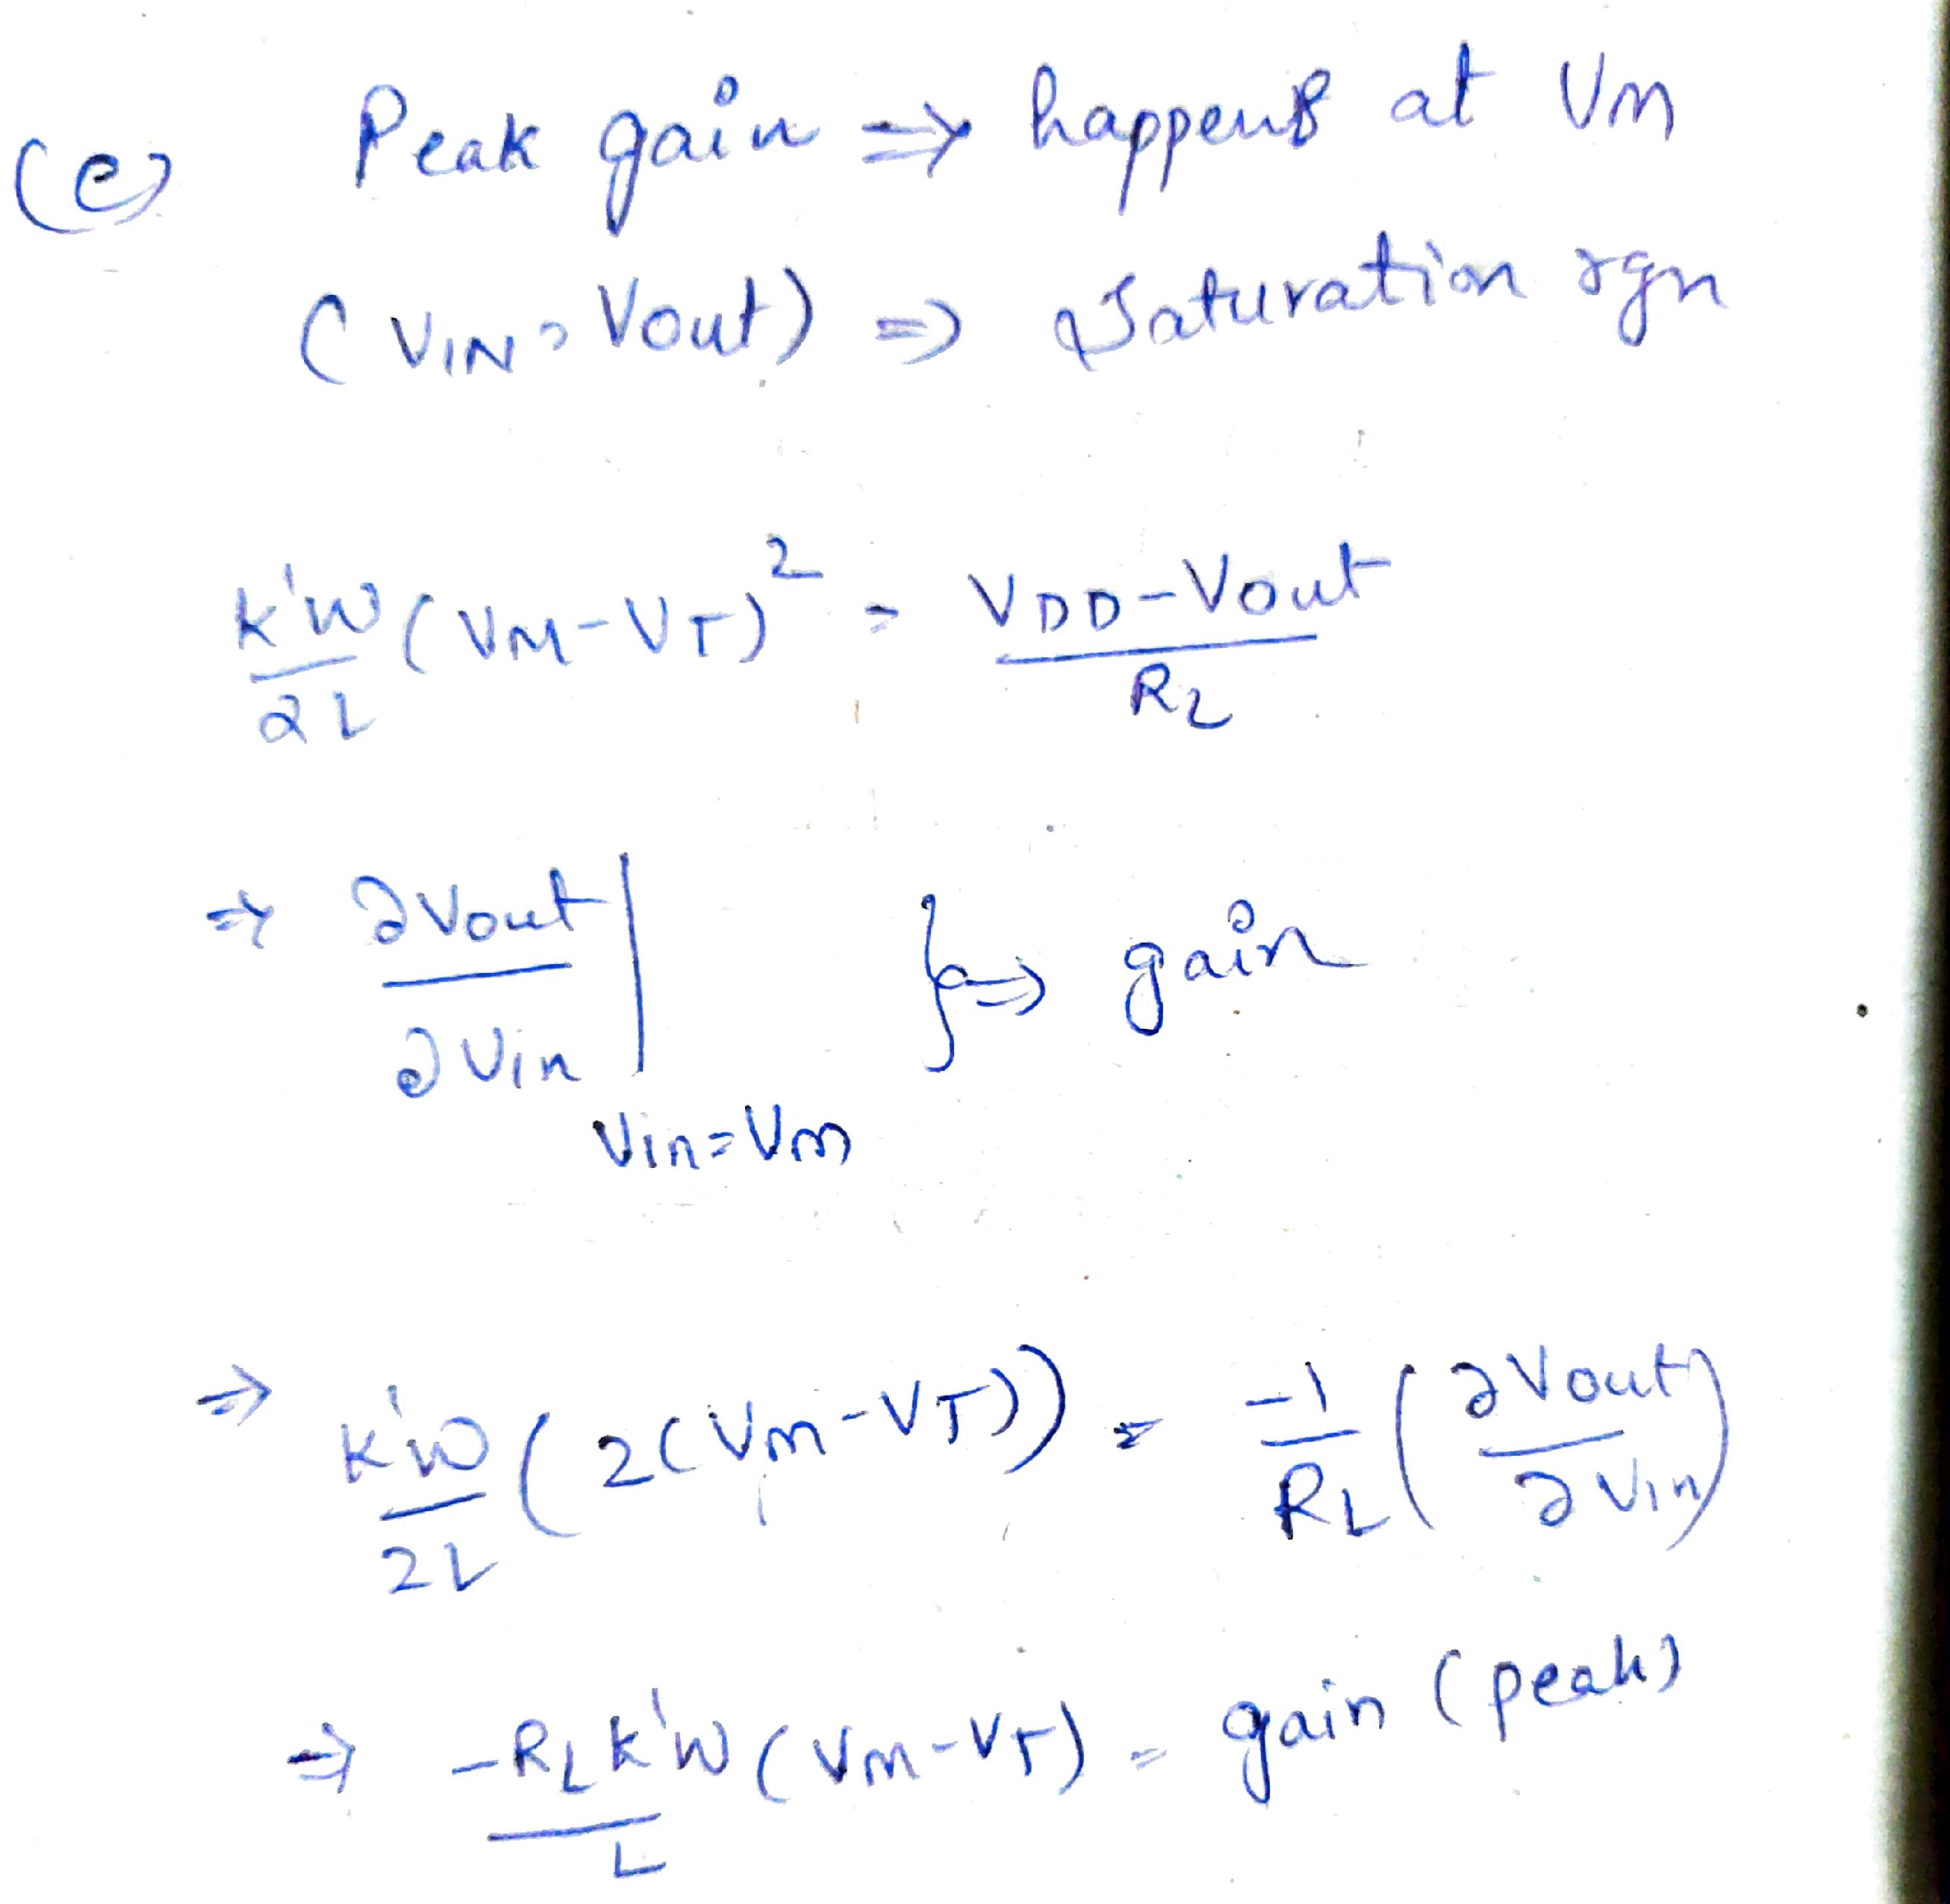 (e) Peak gain ⇒ happens at VM
(VIN = Vout) ⇒ Saturation rgn
k'W/2L (VM-VT)² = (VDD-Vout)/RL
⇒ ∂Vout/∂Vin | Vin=Vm } ⇒ gain
⇒ k'W/2L (2(Vm-VT)) = -1/RL (∂Vout/∂Vin)
⇒ -RL k'W/L (Vm-VT) = gain (peak)